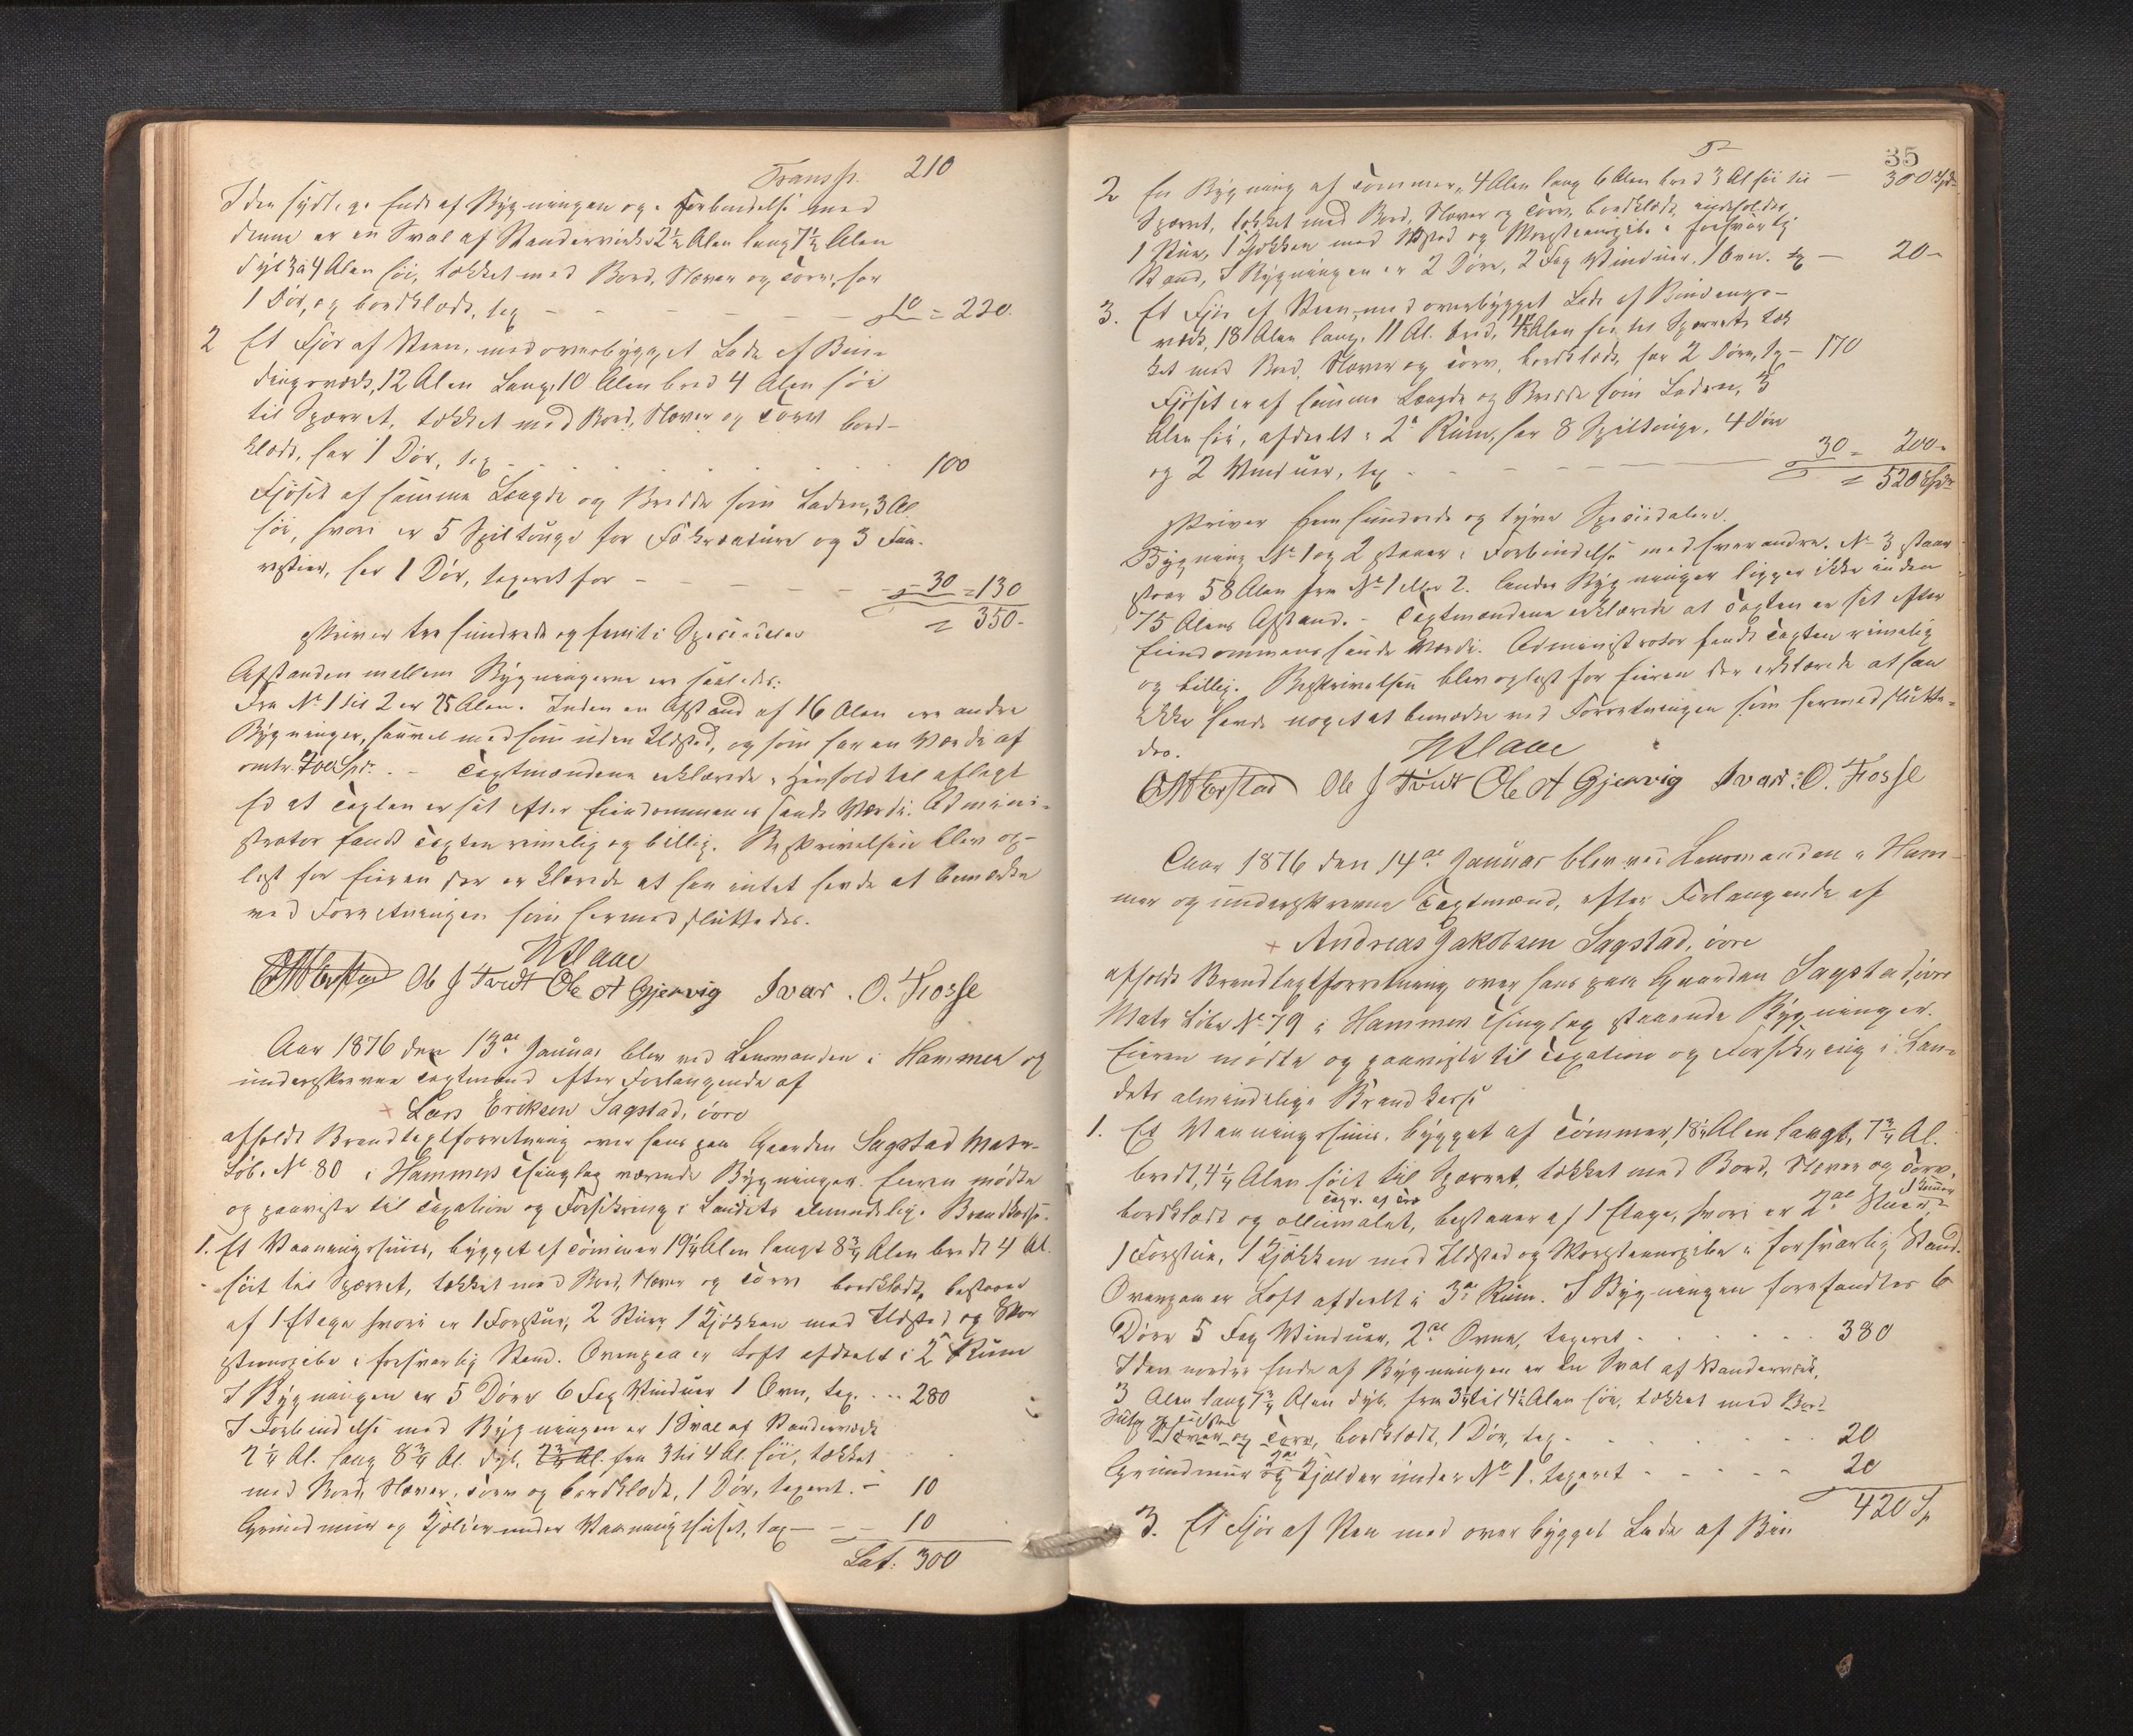 Transp. 210
I den sydlige Ende af Bygningen og i Forbindelse med
denne er en Sval af Standerværk 2½ Alen lang 7½ Alen
dyb 3 à 4 Alen høi, tækket med Bord, Næver og Torv, har
1 Dør, og bordklædt, tax - - - - 10 = 220.
2 Et Fjøs af Steen, med overbygget Lade af Bin-
dingsværk, 12 Alen Lang, 10 Alen bred 4 Alen høi
til Sparret, tækket med Bord, Næver og Torv bord-
klædt, har 1 Dør, tax . . . . 100
Fjøset af samme Længde og Bredde som Laden, 3 Al.
høi, hvori er 5 Spiltouge for Fækreature og 3 Faa-
restier, har 1 Dør, taxeret for - - - 30 = 130
= 350-
skriver tre hundrede og femti Speciedaler
Afstanden mellem Bygningerne er saaledes:
Fra No 1 til 2 er 25 Alen. Inden en Afstand af 16 Alen ere andre
Bygninger, saavel med som uden Ildsted, og som har en Værdi af
omtr. 700 Spd. - Taxtmændene erklærede i Henhold til aflagt
Ed at Taxten er sat efter Eiendommenes sande Værdi. Admini-
strator fandt Taxten rimelig og billig. Beskrivelsen blev op-
læst for Eieren der erklærede at han intet havde at bemærke
ved Forretningen som hermed sluttedes.
Ole J Tvedt Ole A Gjervig Ivar. O. Fosse
Aar 1876 den 13de Januar blev ved Lensmanden i Hammer og
underskrevne Taxtmænd efter Forlangende af
+ Lars Eriksen Sagstad, øvre
afholdt Brandtaxtforretning over hans paa Gaarden Sagstad Matr.
Løb. No 80 i Hammers Thinglag værende Bygninger. Eieren mødte
og paaviste til Taxation og Forsikring i Landets almindelige Brandkasse.
1. Et Vaaningshuus, bygget af Tømmer 19¼ Alen langt 8¾ Alen bredt 4 Al.
høit til Sparret, tækket med Bord, Næver og Torv bordklædt, bestaaer
af 1 Etage hvori er 1 Forstue, 2 Stuer, 1 Kjøkken med Ildsted og Skor
steenspibe i forsvarlig Stand. Ovenpaa er Loft afdeelt i 2 Rum
I Bygningen er 5 Døre 6 Fag Vinduer 1 Ovn, tax. . . . 280
I Forbindelse med Bygningen er 1 Sval af Standerværk
2¼ Al. lang 8¾ Al. dyb, 2¾ Al. fra 3 til 4 Al. høi, tækket
med Bord, Næver, Torv og bordklædt, 1 Dør, taxeret. - 10
Grundmuur og Kjelder under Vaaningshuset, tax - - 10
Lat. 300
35
2 En Bygning af Tømmer, 4 Alen lang 6 Alen bred 3 Al høi til - 300 Spd.
Sparret, tækket med Bord, Næver og Torv, bordklædt, indeholder
1 Stue, 1 Kjøkken med Ildsted og Skorsteenspibe i forsvarlig
Stand, I Bygningen er 2 Døre, 2 Fag Vinduer, 1 Ovn. tx - 20-
3. Et Fjøs af Steen, med overbygget Lade af Bindings-
værk, 18 Alen lang, 11 Al. bred, 4½ Alen høi til Sparret, tæk
ket med Bord, Næver og Torv, bordklædt, har 2 Døre, tx - 170
Fjøset er af samme Længde og Bredde som Laden, 3
Alen høi, afdeelt i 2 Rum, har 8 Spiltouge, 4 Døre
og 2 Vinduer, tx - - - - 30 = 200-
= 520 Spd
skriver fem hundrede og tyve Speciedaler.
Bygning No 1 og 2 staaer i Forbindelse med hverandre. No 3 staar
staar 58 Alen fra No 1 eller 2. Andre Bygninger ligger ikke inden
75 Alens Afstand. - Taxtmændene erklærede at Taxten er sat efter
Eiendommens sande Værdi. Administrator fandt Taxten rimelig
og billig. Beskrivelsen blev oplæst for Eieren der erklærede at han
ikke havde noget at bemærke ved Forretningen som hermed slutte-
des.
Ole J Tvedt Ole A Gjervig Ivar. O. Fosse
Aar 1876 den 14de Januar blev ved Lensmanden i Ham-
mer og underskrevne Taxtmænd, efter Forlangende af
+ Andreas Jakobsen Sagstad, øvre
afholdt Brandtaxtforretning over hans paa Gaarden Sagstad, øvre
Matr Løbe No 79 i Hammers Thinglag staaende Bygninger.
Eieren mødte og paaviste til Taxation og Forsikring i Lan-
dets almindelige Brandkasse
1. Et Vaaningshuus, bygget af Tømmer, 18¼ Alen langt, 7¾ Al.
bredt, 4¼ Alen høit til Sparret, tækket med Bord, Næver og Torv,
bordklædt og olliemalet, bestaaer af 1 Etage, hvori er 2de Stuer, 1 Kammer
1 Forstue, 1 Kjøkken med Ildsted og Skorsteenspibe i forsvarlig Stand.
Ovenpaa er Loft afdeelt i 3de Rum. I Bygningen forefandtes 6
Døre 5 Fag Vinduer, 2de Ovne, taxeret - . . . . 380
I den nordre Ende af Bygningen er en Sval af Standerværk,
3 Alen lang 7¾ Alen dyb, fra 3¼ til 4¼ Alen høi, tækket med Bord
Næver og Torv, bordklædt, 1 Dør, tax - . . . . 20
Grundmuur og Kjelder under No 1. taxeret - - - - 20
420 Sp
3. Et Fjøs af Sten med overbygget Lade af Bin